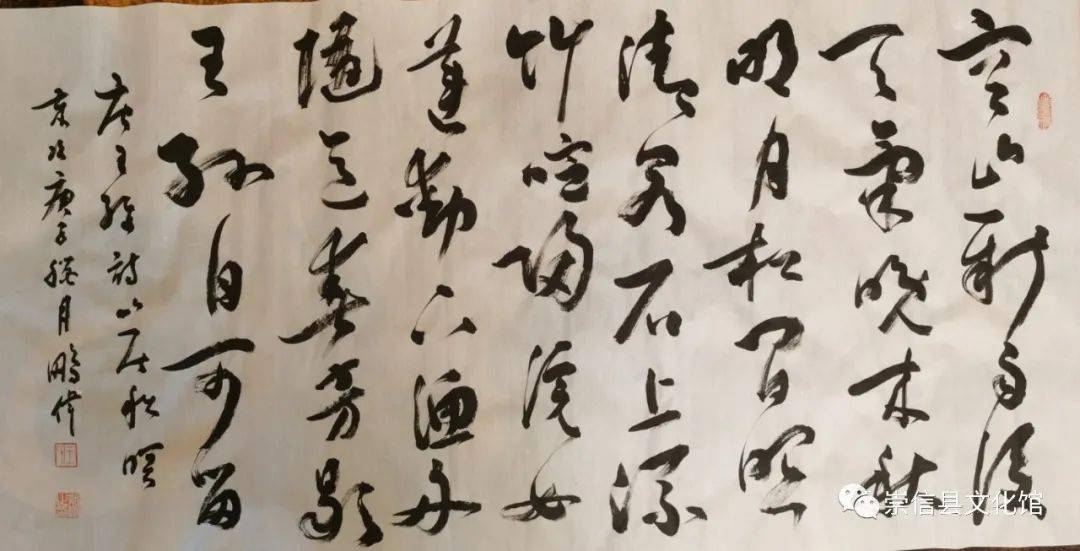 空山新雨後
天氣晚来秋
明月松間照
清泉石上流
竹喧歸浣女
蓮動下漁舟
隨意春芳歇
王孫自可留
唐王維詩山居秋暝
歲次庚子臘月鵬偉
崇信县文化馆